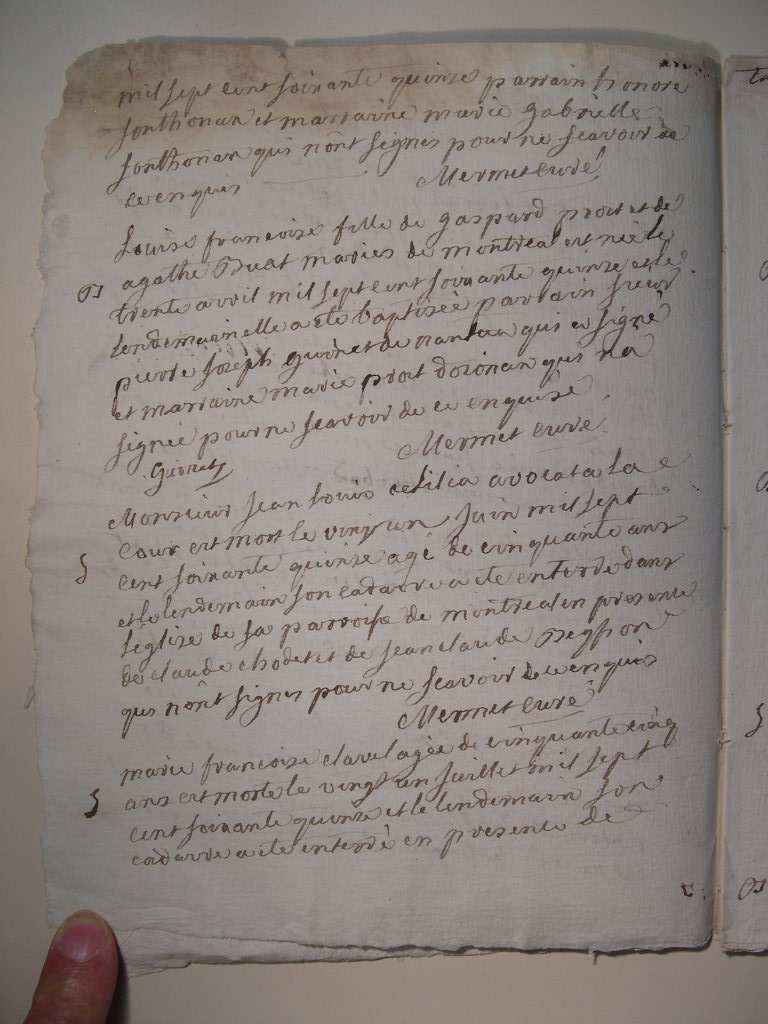 mil sept cent soixante quinze parrain honore
sonthonax et marraine marie gabrielle
sonthonax qui nônt signes pour ne scavoir de
ce enquis Mermet curé
Louise francoise fille de gaspard prost et de
agathe Buat maries de montreal est neé le
B trente avril mil sept cent soixante quinze et le
lendemain elle a ete baptisée parrain sieur
pierre joseph guinet de nantua qui a signé
et marraine marie prost doionax qui na
signée pour ne scavoir de ce enquise
Mermet curé
Monsieur jean louis avocat a la
cour est mort le vingt un juin mil sept
S cent soixante quinze agé de cinquante ans
et le lendemain son cadavre a ete enterre dans
léglise de la parroise de montreal en presence
de claude chodet et de jean claude
qui nônt signes pour ne scavoir de ce enquis
Mermet curé
marie francoise clavel agée de cinquante cinq
S ans est morte le vingt un juillet mil sept
cent soixante quinze et le lendemain son
cadavre a ete enterré en presence de